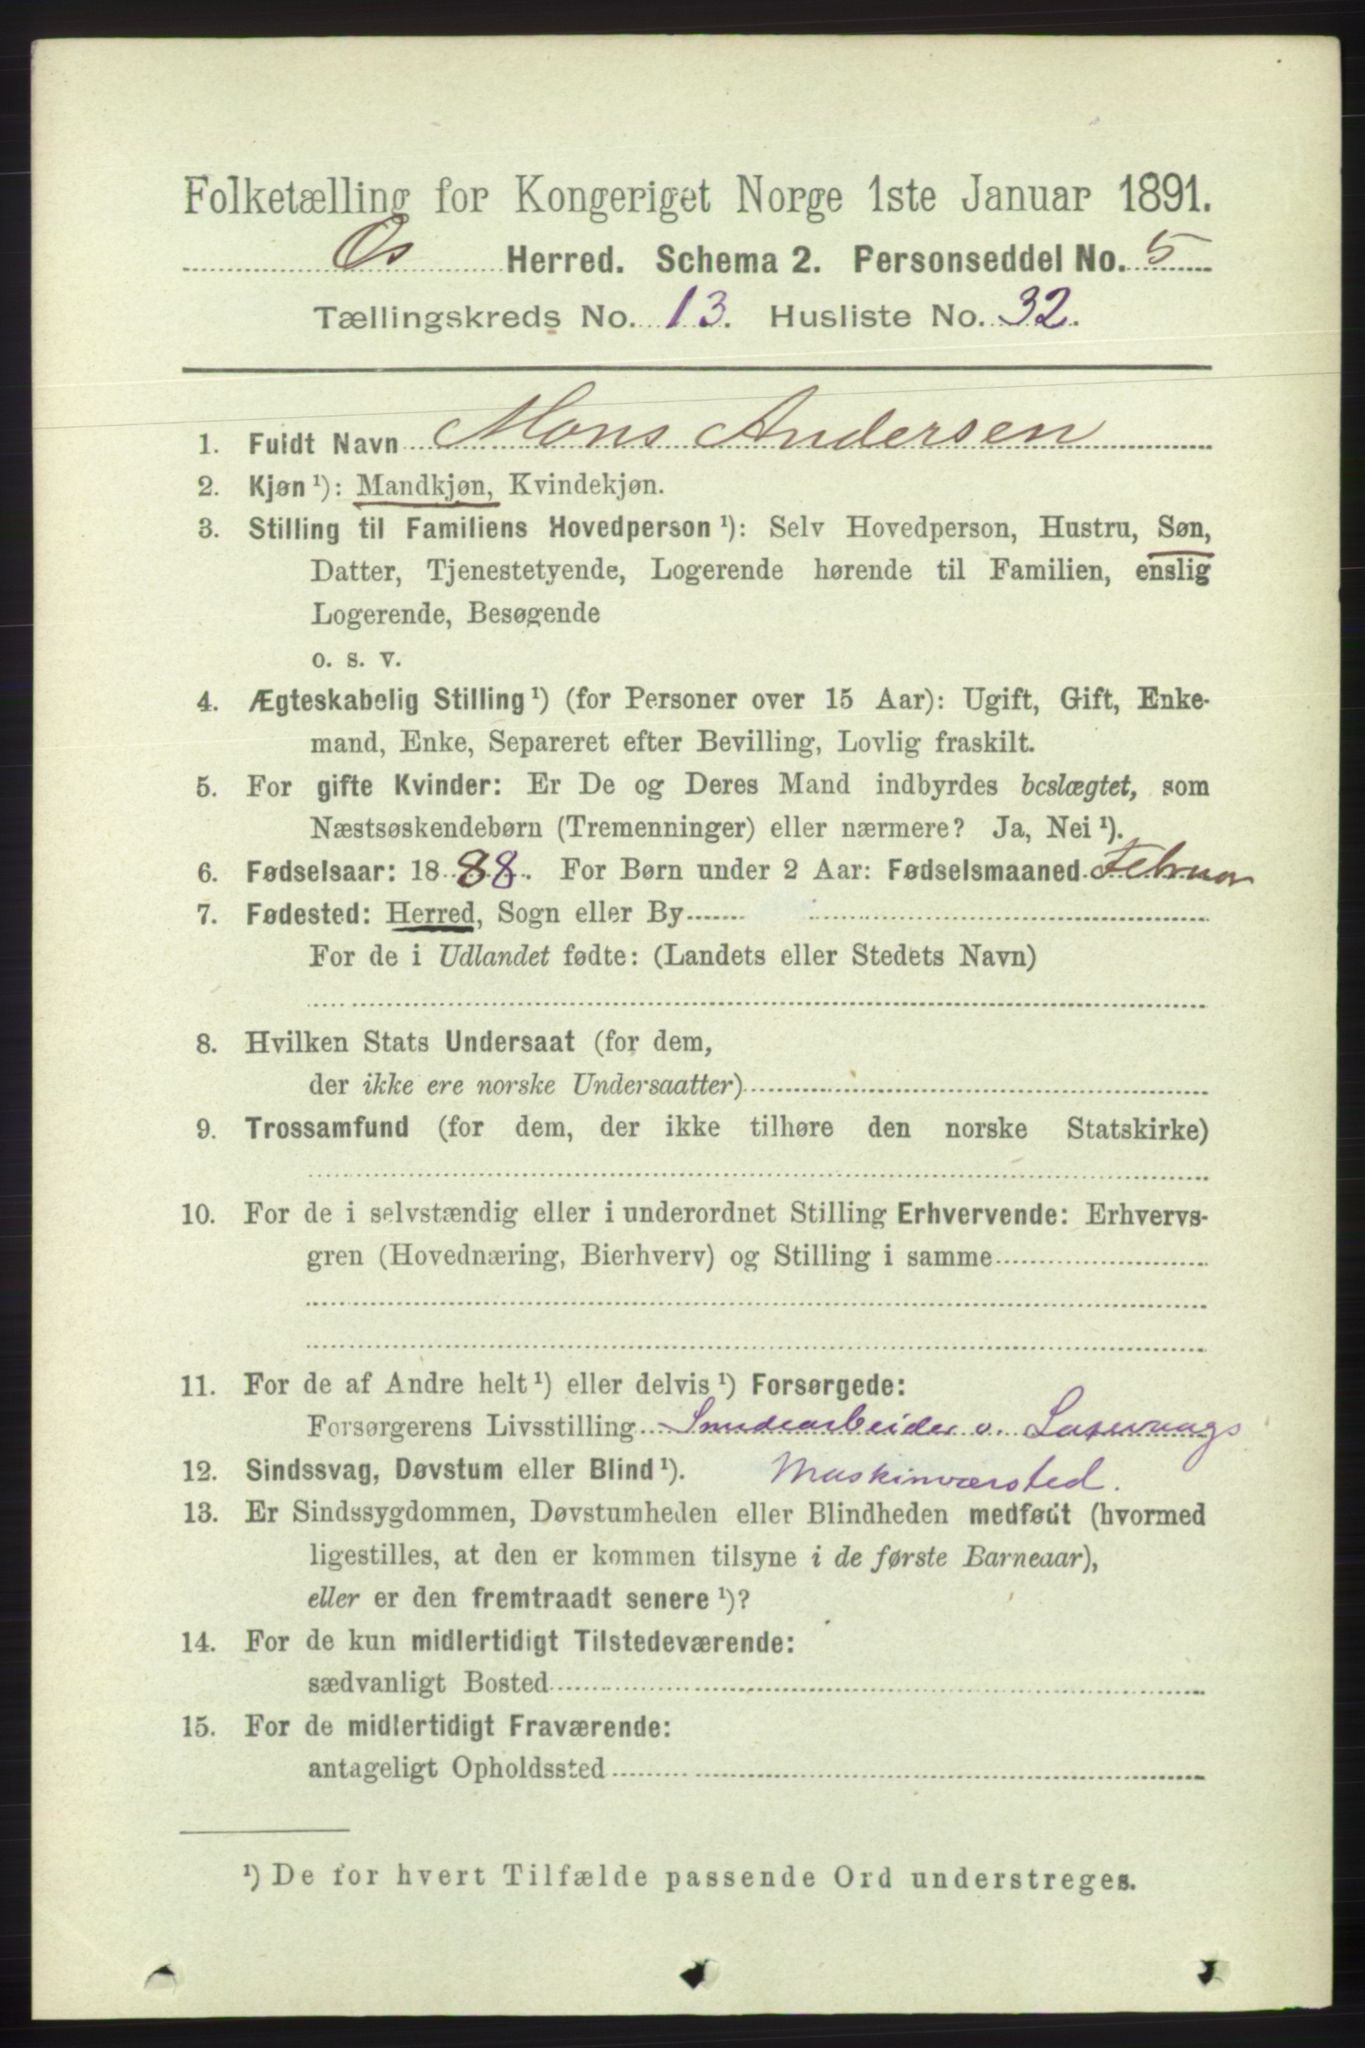 Folketælling for Kongeriget Norge 1ste Januar 1891.
Os Herred. Schema 2. Personseddel No. 5
Tællingskreds No. 13. Husliste No. 32.
1. Fuldt Navn Mons Andersen
2. Kjøn ¹): Mandkjøn, Kvindekjøn.
3. Stilling til Familiens Hovedperson ¹): Selv Hovedperson, Hustru, Søn,
Datter, Tjenestetyende, Logerende hørende til Familien, enslig
Logerende, Besøgende
o. s. v.
4. Ægteskabelig Stilling ¹) (for Personer over 15 Aar): Ugift, Gift, Enke-
mand, Enke, Separeret efter Bevilling, Lovlig fraskilt.
5. For gifte Kvinder: Er De og Deres Mand indbyrdes beslægtet, som
Næstsøskendebørn (Tremenninger) eller nærmere? Ja, Nei ¹).
6. Fødselsaar: 1888. For Børn under 2 Aar: Fødselsmaaned Februar
7. Fødested: Herred, Sogn eller By
For de i Udlandet fødte: (Landets eller Stedets Navn)
8. Hvilken Stats Undersaat (for dem,
der ikke ere norske Undersaatter)
9. Trossamfund (for dem, der ikke tilhøre den norske Statskirke)
10. For de i selvstændig eller i underordnet Stilling Erhvervende: Erhvervs-
gren (Hovednæring, Bierhverv) og Stilling i samme
11. For de af Andre helt ¹) eller delvis ¹) Forsørgede:
Forsørgerens Livsstilling v. Laxevaags
12. Sindssvag, Døvstum eller Blind ¹). Maskinværsted.
13. Er Sindssygdommen, Døvstumheden eller Blindheden medfødt (hvormed
ligestilles, at den er kommen tilsyne i de første Barneaar),
eller er den fremtraadt senere ¹)?
14. For de kun midlertidigt Tilstedeværende:
sædvanligt Bosted
15. For de midlertidigt Fraværende:
antageligt Opholdssted
¹) De for hvert Tilfælde passende Ord understreges.